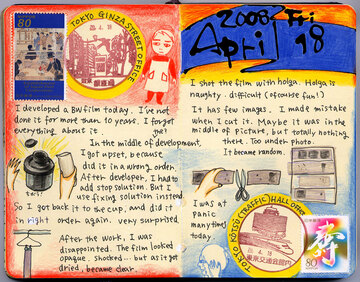 80
TOKYO GINZA STREET OFFICE
I developed a BW film today. I've not
done it for more than 10 years. I forgot
everything about it.
In the middle of development,
I got upset, because
did it in a wrong order.
After developer, I had to
add stop solution. But I
use fixing solution instead.
So I got back it to the cup, and did it
in right order again. very surprised
After the work, I was
disappointed. The film looked
opaque. shocked... but as it got
dried, became clear.
2008 Fri
April 18
I shot the film with holga. Holga is
naughty. difficult (of course fun!)
It has few images. I made mistake
when I cut it. Maybe it was in the
middle of picture, but totally nothing
there. Too under photo.
It became random.
I was at
panic
many times
today.
TOKYO KOTSU (TRAFFIC) HALL OFFICE
20.4.18
東京交通会館内
寿
80